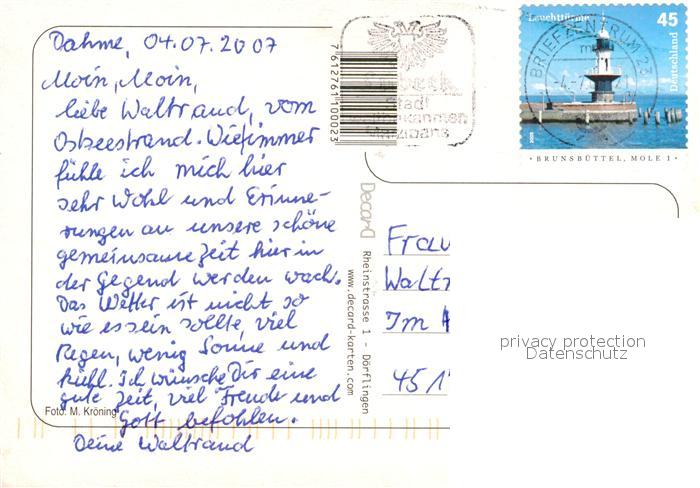 Dahme, 04.07.2007
Moin, Moin,
liebe Waltraud, vom
Ostseestrand. Wie immer
fühle ich mich hier
sehr Wohl und Erinne-
rungen an unsere schöne
gemeinsame Zeit hier in
der Gegend werden wach.
Das Wetter ist nicht so
wie es sein sollte, viel
Regen, wenig Sonne und
kühl. Ich wünsche Dir eine
gute Zeit, viel Freude und
Gott befohlen.
Deine Waltraud
Foto: M. Kröning
7612761100023
Lübeck
Stadt
Marzipans
Decard
Rheinstrasse 1 - Dörflingen
www.decard-karten.com
Leuchttürme
45
Deutschland
BRIEFZENTRUM 23
· BRUNSBÜTTEL, MOLE 1 ·
Frau
Walt
Im
451
privacy protection
Datenschutz